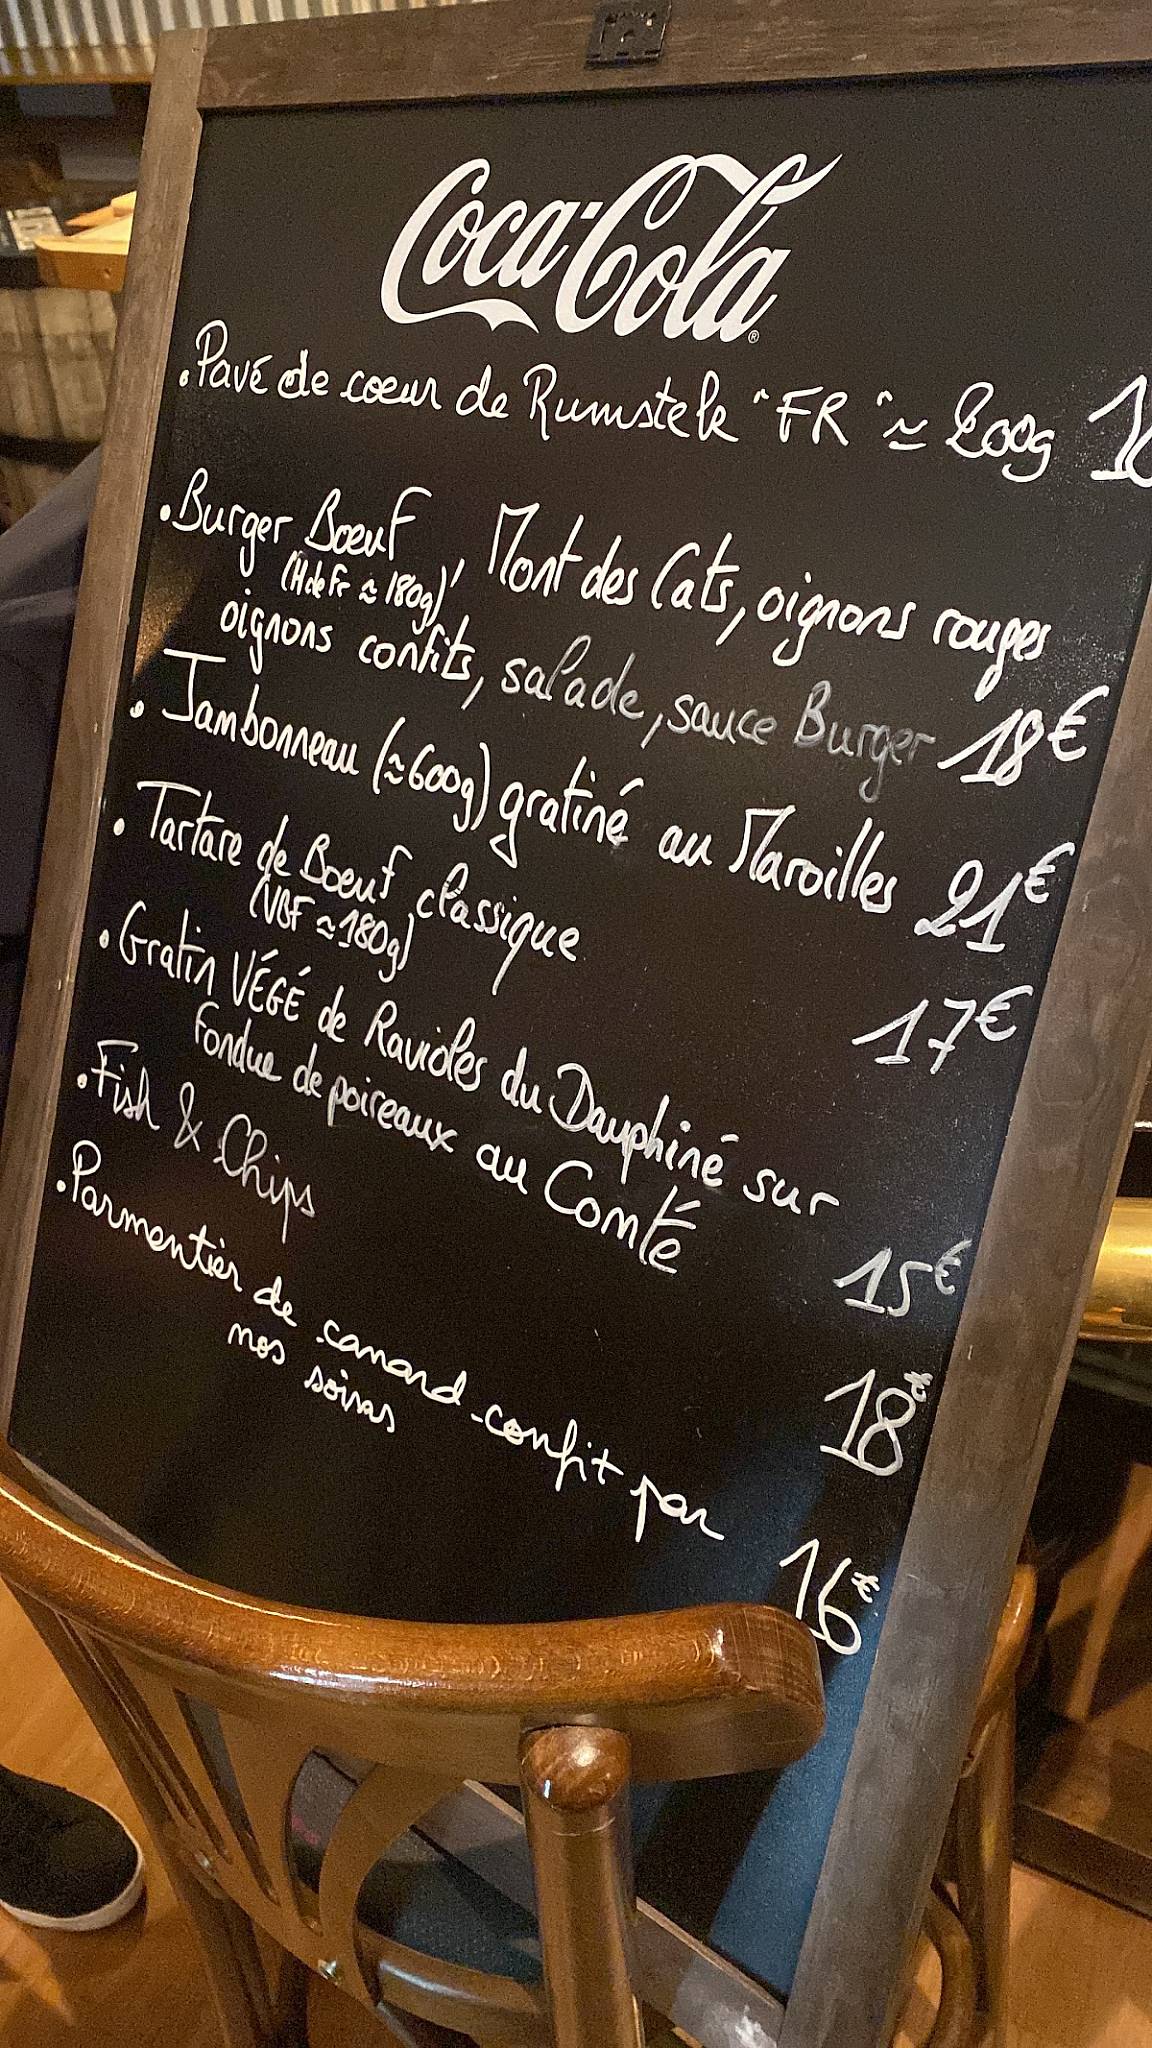 Coca-Cola
• Pavé de coeur de Rumstek "FR" ≃ 200g
• Burger Boeuf, Mont des Cats, oignons rouges
(H de Fr ≈ 180g)
oignons confits, salade, sauce Burger 18€
• Jambonneau (≈600g) gratiné au Maroilles 21€
• Tartare de Boeuf classique
(VBF ≈180g) 17€
• Gratin VÉGÉ de Ravioles du Dauphiné sur
fondue de poireaux au Comté 15€
• Fish & Chips 18€
• Parmentier de canard confit par
nos soins 16€